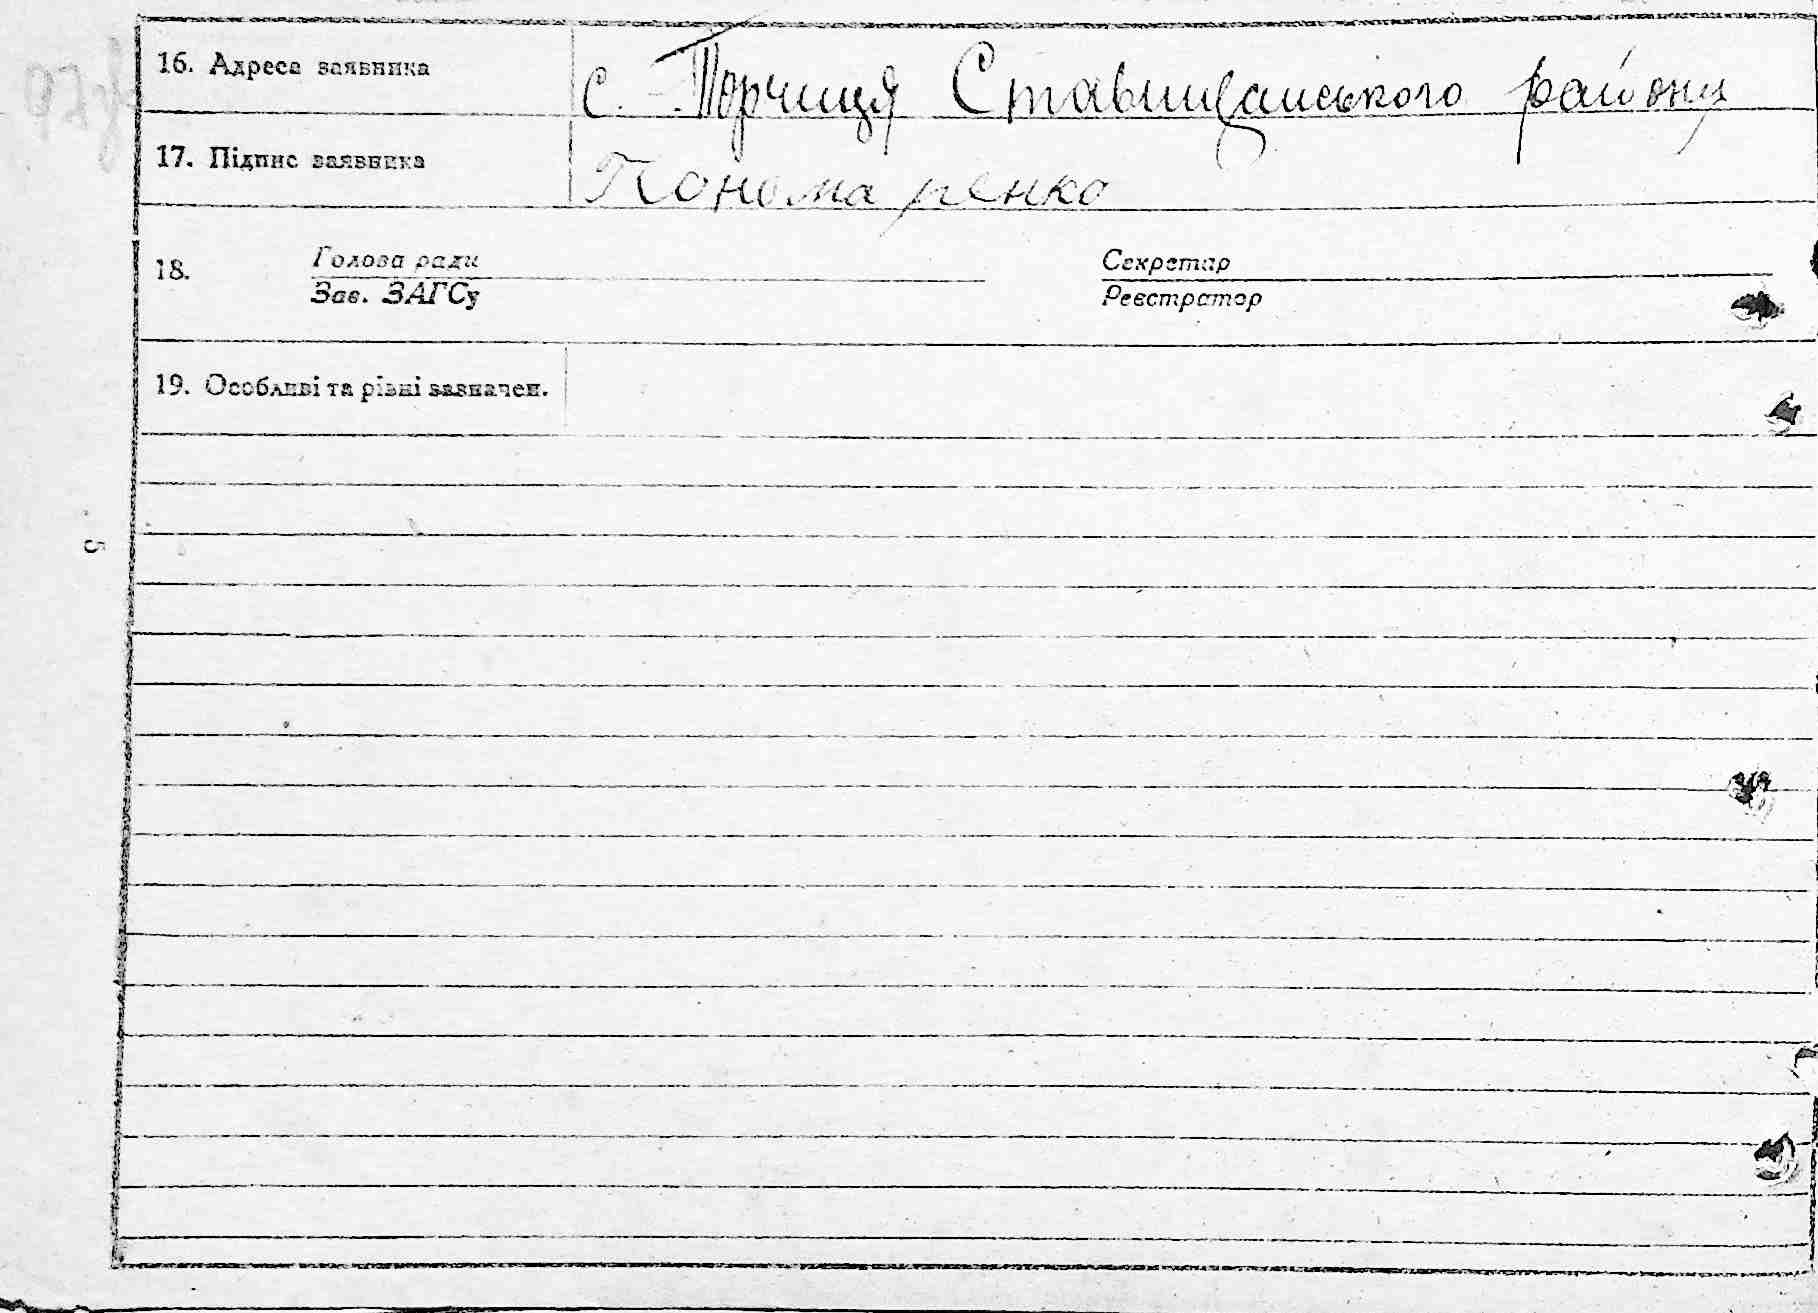 16. Адреса заявника с. Торчиця Ставищанського району
17. Підпис заявника Пономаренко
18. Голова ради Секретар
Зав. ЗАГСу Реєстратор
19. Особливі та різні зазначен.
5